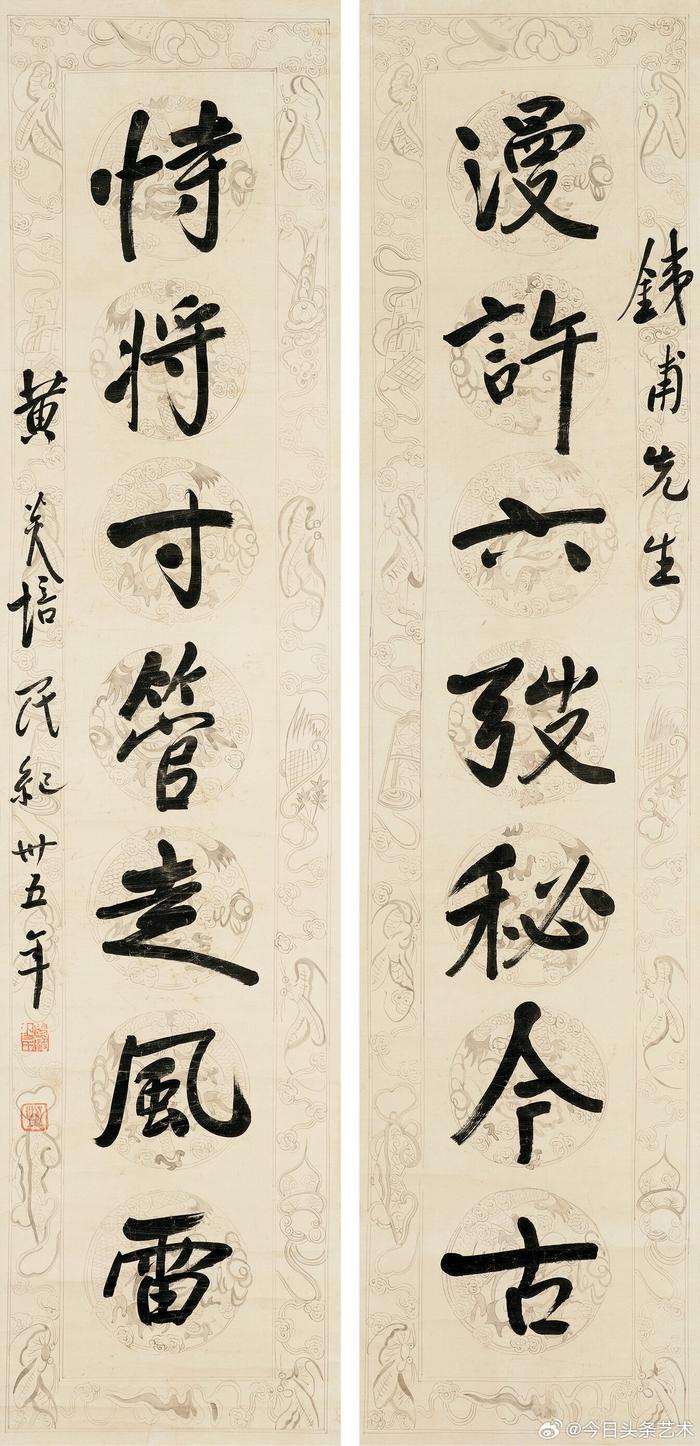 銕甫先生
漫許六弢秘今古
恃将寸管走風雷
黄炎培民紀卅五年
@今日头条艺术